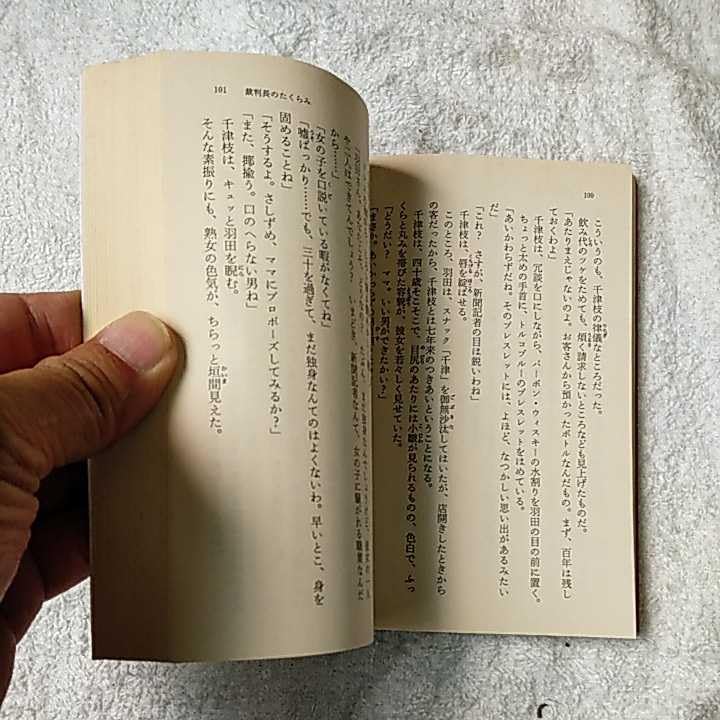 100
こういうのも、千津枝の律儀なところだった。
飲み代のツケをためても、煩く請求しないところなども見上げたものだ。
「あたりまえじゃないのよ。お客さんから預かったボトルなんだもの。まず、百年は残し
ておくわよ」
千津枝は、冗談を口にしながら、バーボン・ウィスキーの水割りを羽田の目の前に置く。
ちょっと太めの手首に、トルコブルーのブレスレットをはめている。
「あいかわらずだね。そのブレスレットには、よほど、なつかしい思い出があるみたい
だ」
「これ? さすが、新聞記者の目は鋭いわね」
千津枝は、唇を綻ばせる。
このところ、羽田は、スナック「千津」を御無沙汰してはいたが、店開きしたときから
の客だったから、千津枝とは七年来のつきあいということになる。
千津枝は、四十歳そこそこで、目尻のあたりには小皺が見られるものの、色白で、ふっ
くらと丸みを帯びた容貌が、彼女を若々しく見せていた。
「どうだい? ママ。いい男ができたかい?」
101 裁判長のたくらみ
いまどき、新聞記者なんて、女の子に騒がれる職業なんだ
から……」
「女の子を口説いている暇がなくてね」
「嘘ばっかり……でも、三十を過ぎて、まだ独身なんてのはよくないわ。早いとこ、身を
固めることね」
「そうするよ。さしずめ、ママにプロポーズしてみるか?」
「また、揶揄う。口のへらない男ね」
千津枝は、キュッと羽田を睨む。
そんな素振りにも、熟女の色気が、ちらっと垣間見えた。